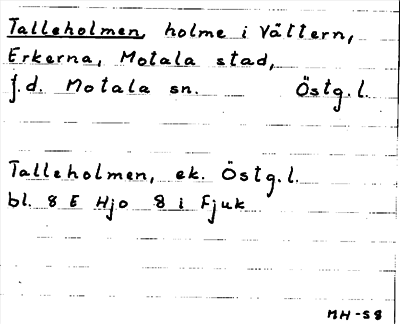 Talleholmen, holme i Vättern,
Erkerna, Motala stad,
f.d. Motala sn. Östg.l.
Talleholmen, ek. Östg.l.
bl. 8 E Hjo 8 i Fjuk
MH-58